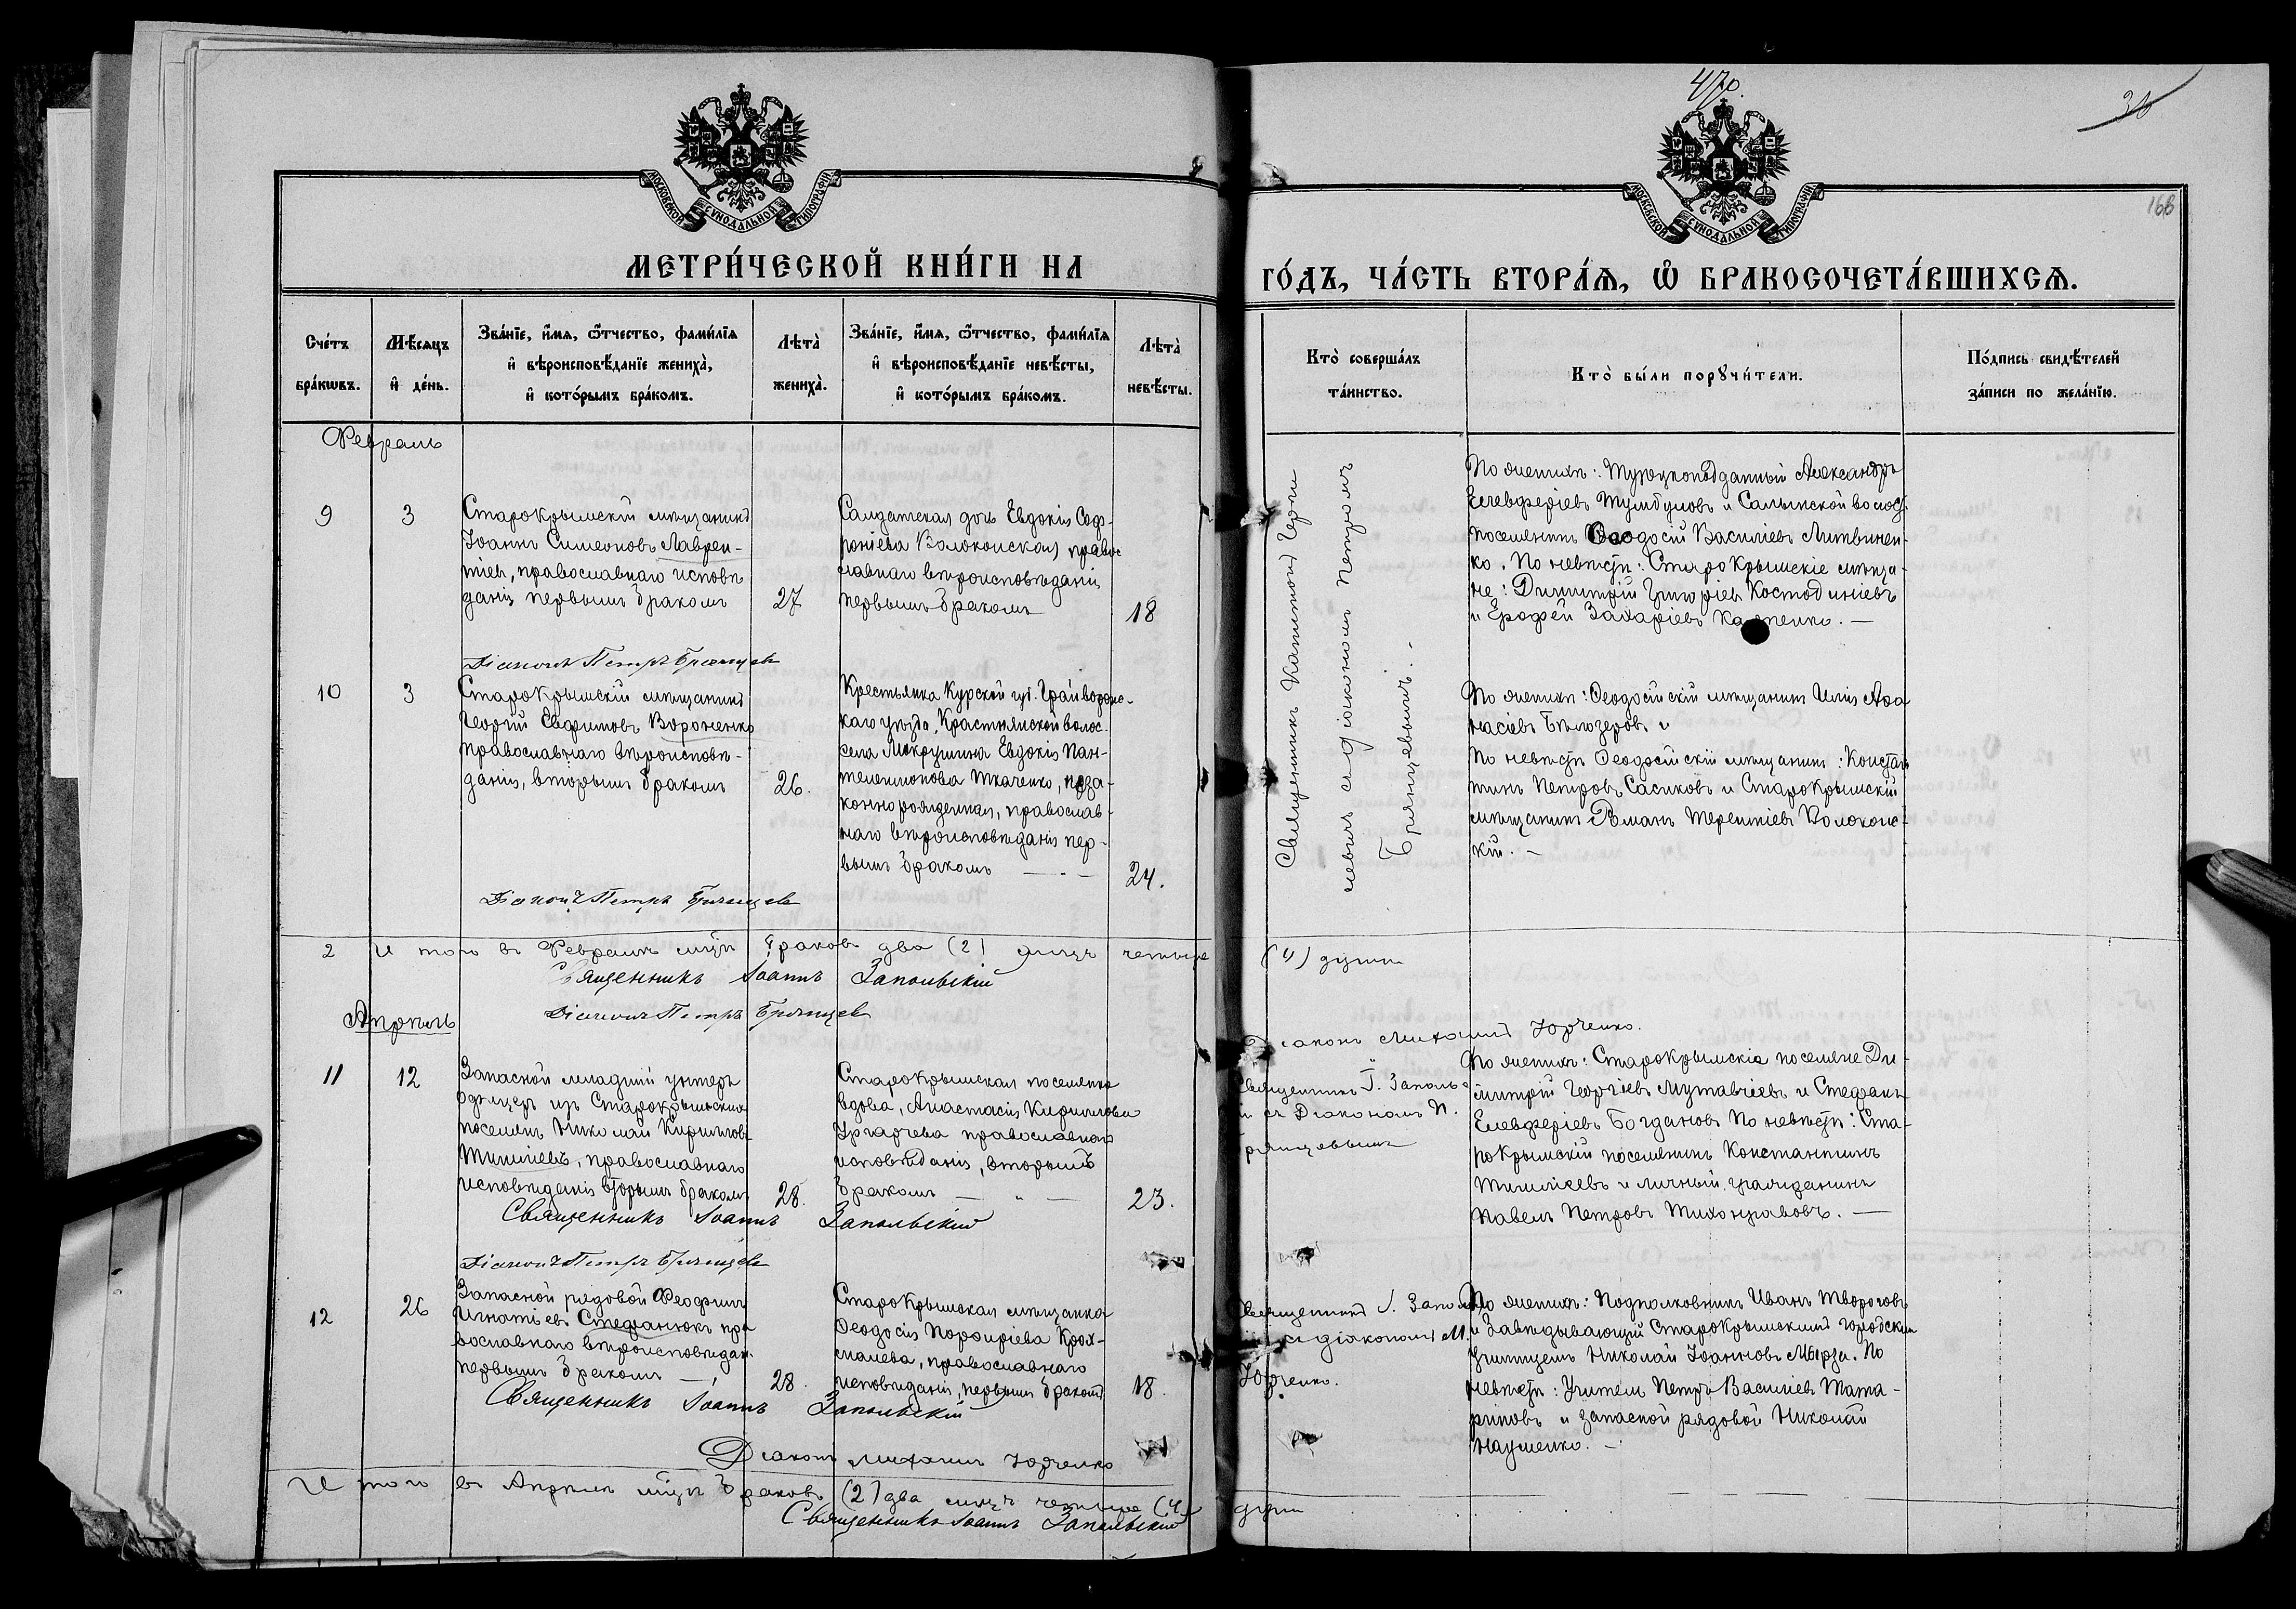 470.
36
166
МОСКОВСКОЙ СУНОДАЛЬНОЙ ТИПОГРАФІИ
МОСКОВСКОЙ СУНОДАЛЬНОЙ ТИПОГРАФІИ
МЕТРИ́ЧЕСКОЙ КНИ́ГИ НА
ГО́ДЪ, ЧА́СТЬ ВТОРА́Ѧ, Ѽ БРАКОСОЧЕТА́ВШИХСѦ.
Сче́тъ
бра́кѡвъ.
Мѣ́сяцъ
и҆ де́нь.
Зва́нїе, и҆́мя, ѻ҆́тчество, фами́лїя
и҆ вѣроисповѣ́данїе жениха̀,
и҆ кото́рымъ бра́комъ.
Лѣта̀
жениха̀.
Зва́нїе, и҆́мя, ѻ҆́тчество, фами́лїя
и҆ вѣроисповѣ́данїе невѣ́сты,
и҆ кото́рымъ бра́комъ.
Лѣта̀
невѣ́сты.
Кто̀ соверша́лъ
та́инство.
Кто̀ бы́ли порꙋчи́тели.
По́дпись свидѣ́телей
за́писи по жела́нїю.
Февраль
9
3
Старокрымскій мѣщанинъ
Іоаннъ Симеоновъ Лаврен-
тіев, православнаго исповѣ
данія первымъ бракомъ
27
Солдатская дочь Евдокія Соф-
роніева Волоконская, правос
лавнаго вѣроисповѣданія
первымъ бракомъ
18
Священникъ
съ діакономъ Петромъ
Брянцевымъ.
По женихѣ: Турецкоподданный Александръ
Елевферіевъ Тумбуловъ и Салынской волост.
поселянинъ Ѳеодосій Василіевъ Литвинен-
ко. По невѣстѣ: Старокрымскіе мѣща-
не: Димитрій Григоріевъ Костодиніевъ
и Ерофей Захаріевъ
Діаконъ Петръ Брянцевъ
10
3
Старокрымскій мѣщанинъ
Георгій Евфимовъ Вороненко
православнаго вѣроисповѣ-
данія, вторымъ бракомъ
26.
Крестьянка Курской губ. Грайворонс-
каго уѣзда, волос.
села Мокрушина Евдокія Пан-
телеимонова Ткаченко, неза-
коннорожденная, православ-
наго вѣроисповѣданія пер-
вымъ бракомъ
24.
По женихѣ: Ѳеодосійскій мѣщанинъ Илія Аѳа
насіевъ Бѣлозеровъ и
По невѣстѣ Ѳеодосійскій мѣщанинъ: Констан
тинъ Петровъ Сасиковъ и Старокрымскій
мѣщанинъ Романъ Терентіевъ Волоконс-
кій. —
Діаконъ Петръ Брянцевъ
2 Итого въ Февралѣ мцѣ браковъ два (2) лицъ четыре (4) души
Священникъ Іоаннъ Запольскій
Діаконъ Петръ Брянцевъ
Апрѣль
Діаконъ Михаилъ Юрченко.
11
12
Запасной младшій унтеръ
офицеръ изъ Старокрымскихъ
поселянъ Николай Кирилловъ
Тимчіевъ, православнаго
исповѣданія вторымъ бракомъ
28.
Старокрымская поселянка
вдова, Анастасія Кириллова
православнаго
исповѣданія, вторымъ
бракомъ
23.
Священникъ І. Заполь
й съ Діакономъ П.
рянцевымъ
По женихѣ: Старокрымскіе поселяне Ди-
митрій Георгіевъ Мутавчіевъ и Стефанъ
Елевферіевъ Богдановъ По невѣстѣ: Ста-
рокрымскій поселянинъ Константинъ
Тимчіевъ и личный гражданинъ
Павелъ Петровъ Тихонравовъ. —
Священникъ Іоаннъ Запольскій
Діаконъ Петръ Брянцевъ
12
26
Запасной рядовой Феофилъ
Игнатіевъ Стефанюкъ пра
вославнаго вѣроисповѣдан.
первымъ бракомъ —
28.
Старокрымская мѣщанка
Ѳеодосія Порфиріева Крох-
малева, православнаго
исповѣданія, первымъ бракомъ
18.
Священникъ І. Запол
съ діакономъ М.
Юрченко.
По женихѣ: Подполковникъ Иванъ Твороговъ
и Завѣдывающій Старокрымскимъ городскимъ
Училищемъ Николай Іоанновъ Мырза. По
невѣстѣ: Учитель Петръ Василіевъ Тата-
риновъ и запасной рядовой Николай
Науменко. —
Священникъ Іоаннъ Запольскій
Діаконъ Михаилъ Юрченко
Итого въ Апрѣлѣ мцѣ браковъ (2) два лицъ четыре (4) души
Священникъ Іоаннъ Запольскій